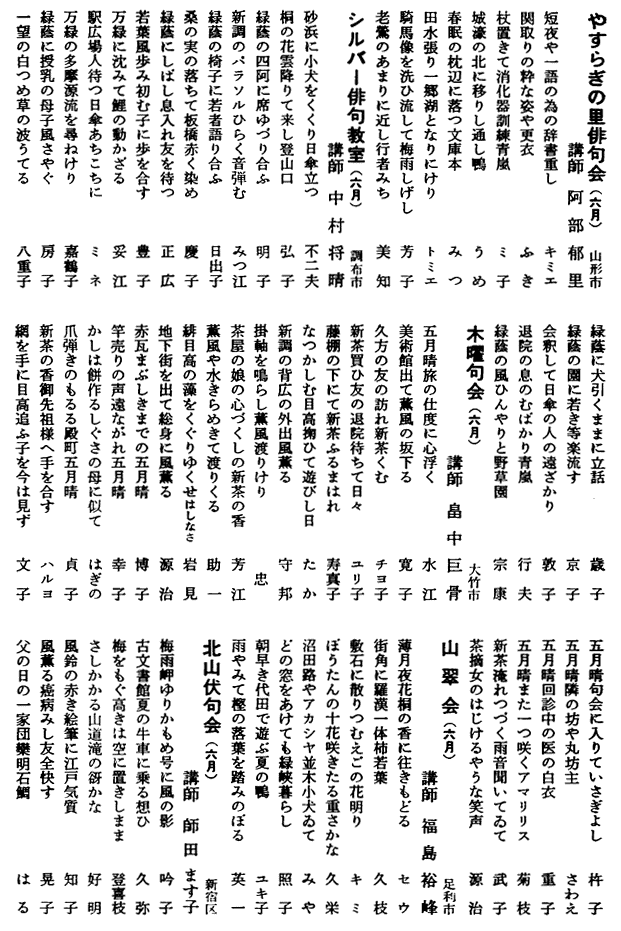 やすらぎの里俳句会(六月)
山形市
講師 阿部郁里
短夜や一語の為の辞書重し キミエ
関取りの粋な姿や更衣 ふき
杖置きて消化器訓練青嵐 ミ子
城濠の北に移りし通し鴨 うめ
春眠の枕辺に落つ文庫本 みつ
田水張り一郷湖となりにけり トミエ
騎馬像を洗ひ流して梅雨しげし 芳子
老鶯のあまりに近し行者みち 美知
シルバー俳句教室(六月)
調布市
講師 中村将晴
砂浜に小犬をくくり日傘立つ 不二夫
桐の花雲降りて来し登山口 弘子
緑蔭の四阿に席ゆづり合ふ 明子
新調のパラソルひらく音弾む みつ江
緑蔭の椅子に若者語り合ふ 日出子
桑の実の落ちて板橋赤く染め 慶子
緑蔭にしばし息入れ友を待つ 正広
若葉風歩み初む子に歩を合す 豊子
万緑に沈みて鯉の動かざる 妥江
駅広場人待つ日傘あちこちに ミネ
万緑の多摩源流を尋ねけり 嘉鶴子
緑蔭に授乳の母子風さやぐ 房子
一望の白つめ草の波うてる 八重子
緑蔭に犬引くままに立話 歳子
緑蔭の園に若き等楽流す 京子
会釈して日傘の人の遠ざかり 敦子
退院の息のむばかり青嵐 行夫
緑蔭の風ひんやりと野草園 宗康
木曜句会(六月)
大竹市
講師 畠中巨骨
五月晴旅の仕度に心浮く 水江
美術館出て薫風の坂下る 寛子
久方の友の訪れ新茶くむ チヨ子
新茶買ひ友の退院待ちて日々 ユリ子
藤棚の下にて新茶ふるまはれ 寿真子
なつかしむ目高掬ひて遊びし日 たか
新調の背広の外出風薫る 守邦
掛軸を鳴らし薫風渡りけり 忠
茶屋の娘の心づくしの新茶の香 芳江
薫風や水きらめきて渡りくる 助一
緋目高の藻をくぐりゆくせはしなさ 岩見
地下街を出て総身に風薫る 源治
赤瓦まぶしきまでの五月晴 博子
竿売りの声遠ながれ五月晴 幸子
かしは餅作るしぐさの母に似て はぎの
爪弾きのもるる殿町五月晴 貞子
新茶の香御先祖様へ手を合す ハルヨ
網を手に目高追ふ子を今は見ず 文子
五月晴句会に入りていさぎよし 杵子
五月晴隣の坊や丸坊主 さわえ
五月晴回診中の医の白衣 重子
五月晴また一つ咲くアマリリス 菊枝
新茶淹れつづく雨音聞いてゐて 武子
茶摘女のはじけるやうな笑声 源治
山翠会(六月)
足利市
講師 福島裕峰
薄月夜花桐の香に往きもどる セウ
街角に羅漢一体柿若葉 久枝
敷石に散りつむえごの花明り キミ
ぼうたんの十花咲きたる重さかな 久栄
沼田路やアカシヤ並木小犬ゐて みや
どの窓をあけても緑峡暮らし 照子
朝早き代田で遊ぶ夏の鴨 ユキ子
雨やみて樫の落葉を踏みのぼる 英一
北山伏句会(六月)
新宿区
講師 師田ます子
梅雨岬ゆりかもめ号に風の影 吟子
古文書館夏の牛車に乗る想ひ 久弥
梅をもぐ高きは空に置きしまま 登喜枝
さしかかる山道滝の谺かな 好明
風鈴の赤き絵筆に江戸気質 知子
風薫る癌病みし友全快す 晃子
父の日の一家団欒明石鯛 はる